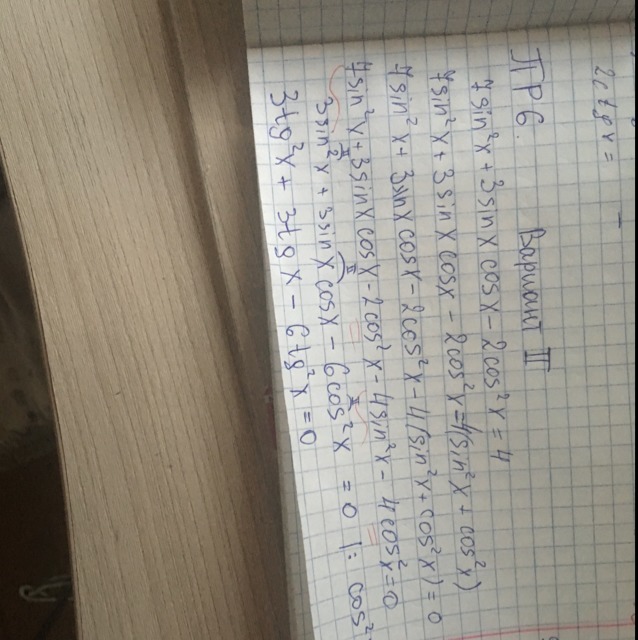 2ctgx = -
ПР6 Вариант II
7sin²x + 3sinx cosx - 2cos²x = 4
7sin²x + 3sinx cosx - 2cos²x = 4(sin²x + cos²x)
7sin²x + 3sinx cosx - 2cos²x - 4(sin²x + cos²x) = 0
7sin²x + 3sinx cosx - 2cos²x - 4sin²x - 4cos²x = 0
3sin²x + 3sinx cosx - 6cos²x = 0 | : cos²
3tg²x + 3tgx - 6tg²x = 0